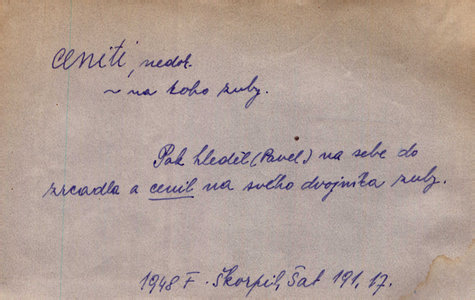 ceniti, nedok.
~ na koho zuby.
Pak hleděl (Pavel) na sebe do
zrcadla a cenil na svého dvojníka zuby.
1948 F. Škorpil, Šat 191, 17.